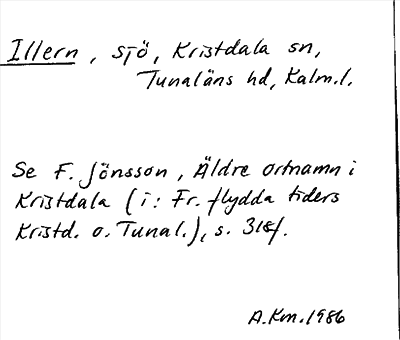 Illern, sjö, Kristdala sn,
Tunaläns hd, Kalm.l.
Se F. Jönsson, Äldre ortnamn i
Kristdala (i: Fr. flydda tiders
Kristd. o. Tunal.), s. 318f.
A.Km.1986